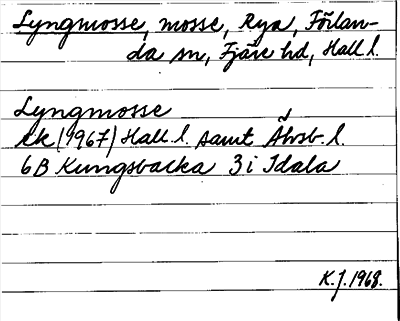 Lyngmosse, mosse, Rya, Förlan-
da sn, Fjäre hd, Hall l.
Lyngmosse
ek (1967) Hall. l. samt Älvsb. l.
6B Kungsbacka 3i Idala
K.J. 1968.